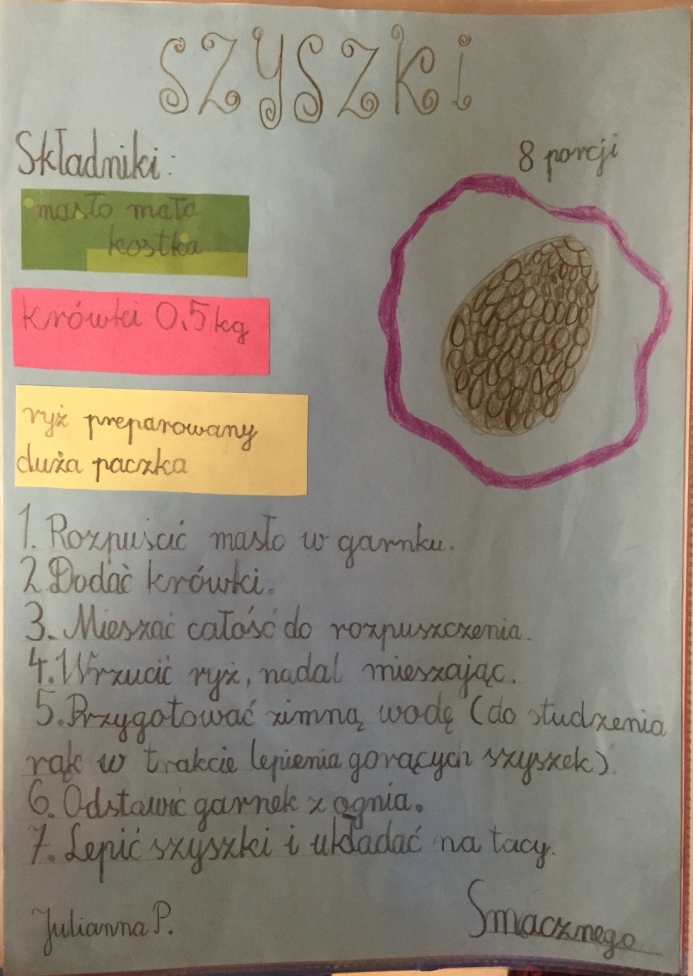 SZYSZKI
Składniki:
8 porcji
masło mała
kostka
krówki 0,5 kg
ryż preparowany
duża paczka
1. Rozpuścić masło w garnku.
2. Dodać krówki.
3. Mieszać całość do rozpuszczenia.
4. Wrzucić ryż, nadal mieszając.
5. Przygotować zimną wodę (do studzenia
rąk w trakcie lepienia gorących szyszek).
6. Odstawić garnek z ognia.
7. Lepić szyszki i układać na tacy.
Julianna P.
Smacznego